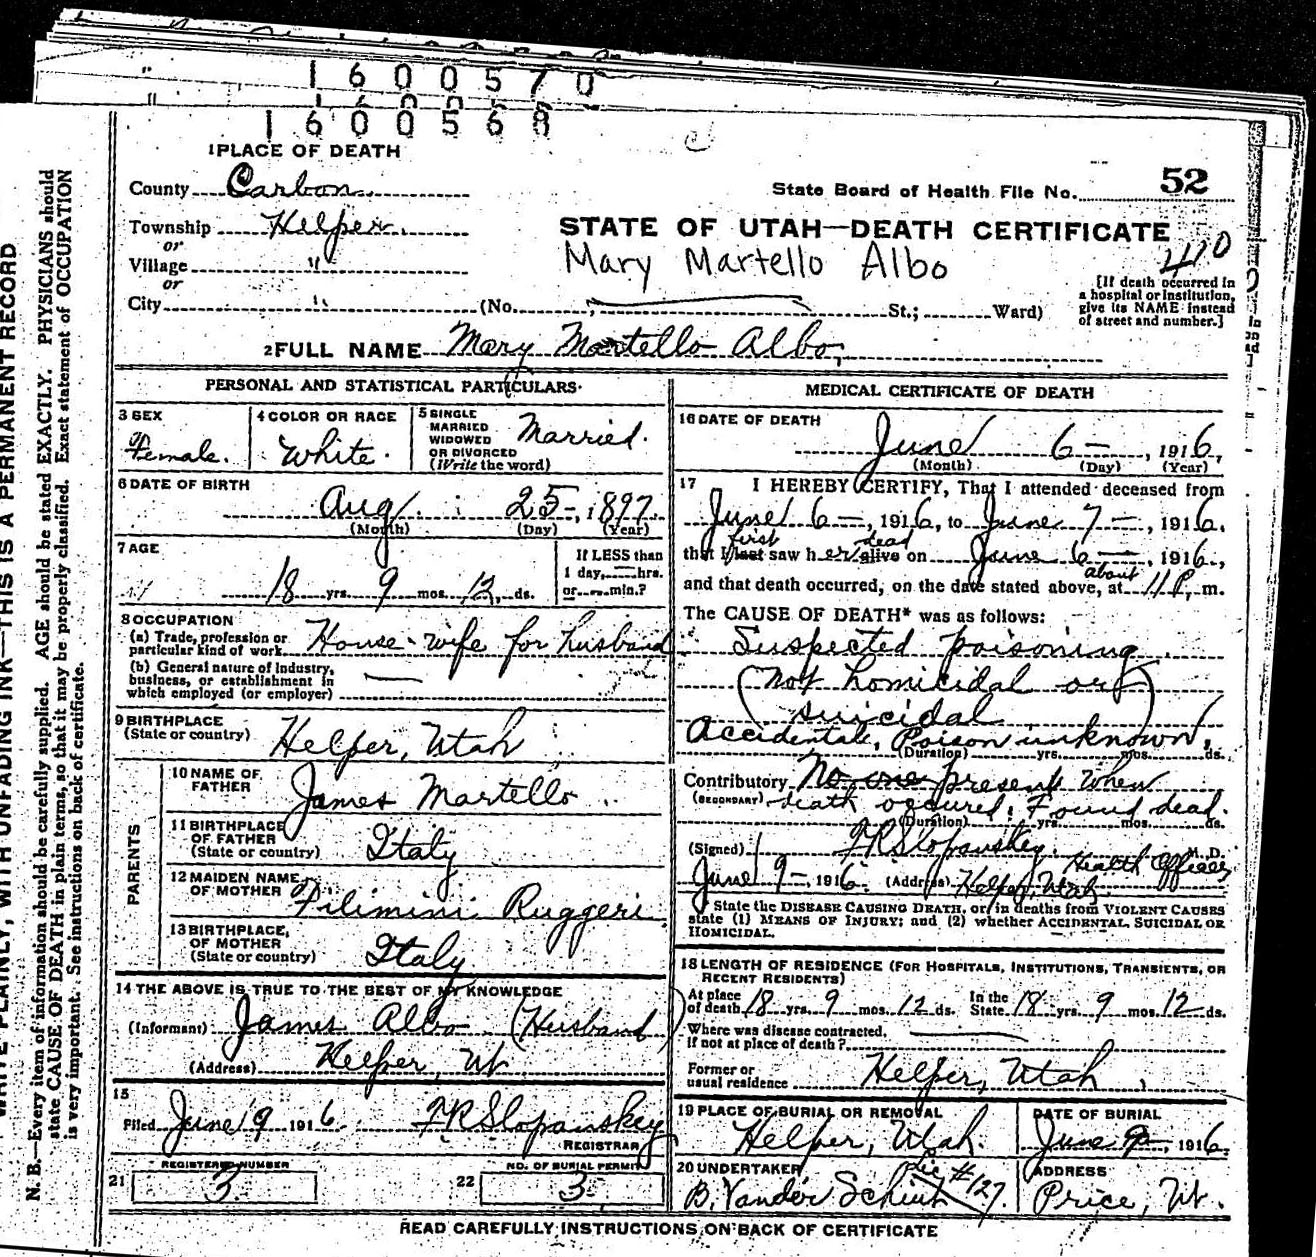 1600570
1600568
1 PLACE OF DEATH
County Carbon
State Board of Health File No. 52
Township Helper.
or
STATE OF UTAH—DEATH CERTIFICATE
Mary Martello Albo
410
Village "
or
City " (No. St.; Ward)
[If death occurred in a hospital or institution, give its NAME instead of street and number.]
2 FULL NAME Mary Martello Albo.
PERSONAL AND STATISTICAL PARTICULARS
3 SEX
Female.
4 COLOR OR RACE
White.
5 SINGLE MARRIED WIDOWED OR DIVORCED (Write the word)
Married.
6 DATE OF BIRTH
Aug. 25, 1897.
(Month) (Day) (Year)
7 AGE
18 yrs. 9 mos. 12 ds.
If LESS than 1 day, hrs. or min.?
8 OCCUPATION
(a) Trade, profession or particular kind of work House-wife for husband
(b) General nature of industry, business, or establishment in which employed (or employer)
9 BIRTHPLACE
(State or country) Helper, Utah
PARENTS
10 NAME OF FATHER James Martello
11 BIRTHPLACE OF FATHER (State or country) Italy
12 MAIDEN NAME OF MOTHER Filimini Ruggeri
13 BIRTHPLACE, OF MOTHER (State or country) Italy
14 THE ABOVE IS TRUE TO THE BEST OF MY KNOWLEDGE
(Informant) James Albo (Husband)
(Address) Helper, Ut
15
Filed June 9 1916. F R Slopanskey
REGISTRAR
21 REGISTERED NUMBER 3
22 NO. OF BURIAL PERMIT 3
MEDICAL CERTIFICATE OF DEATH
16 DATE OF DEATH
June 6—, 1916,
(Month) (Day) (Year)
17 I HEREBY CERTIFY, That I attended deceased from
June 6—, 1916, to June 7—, 1916.
first dead
that I last saw her alive on June 6—, 1916,
and that death occurred, on the date stated above, at about 11 P. m.
The CAUSE OF DEATH* was as follows:
Suspected poisoning
(Not homicidal or
suicidal)
Accidental, Poison unknown.
(Duration) yrs. mos. ds.
Contributory No one present when
(SECONDARY) death occured. Found dead.
(Duration) yrs. mos. ds.
(Signed) F R Slopanskey. M. D.
Health Officer
June 9—, 1916. (Address) Helper, Utah.
* State the DISEASE CAUSING DEATH, or, in deaths from VIOLENT CAUSES
state (1) MEANS OF INJURY; and (2) whether ACCIDENTAL, SUICIDAL OR
HOMICIDAL.
18 LENGTH OF RESIDENCE (FOR HOSPITALS, INSTITUTIONS, TRANSIENTS, OR
RECENT RESIDENTS)
At place of death 18 yrs. 9 mos. 12 ds. In the State 18 yrs. 9 mos. 12 ds.
Where was disease contracted, if not at place of death?
Former or usual residence Helper, Utah
19 PLACE OF BURIAL OR REMOVAL
Helper, Utah.
DATE OF BURIAL
June 9—, 1916.
20 UNDERTAKER
Lic #127.
ADDRESS
Price, Ut.
READ CAREFULLY INSTRUCTIONS ON BACK OF CERTIFICATE
WRITE PLAINLY, WITH UNFADING INK—THIS IS A PERMANENT RECORD
N. B.—Every item of information should be carefully supplied. AGE should be stated EXACTLY. PHYSICIANS should
state CAUSE OF DEATH in plain terms, so that it may be properly classified. Exact statement of OCCUPATION
is very important. See instructions on back of certificate.